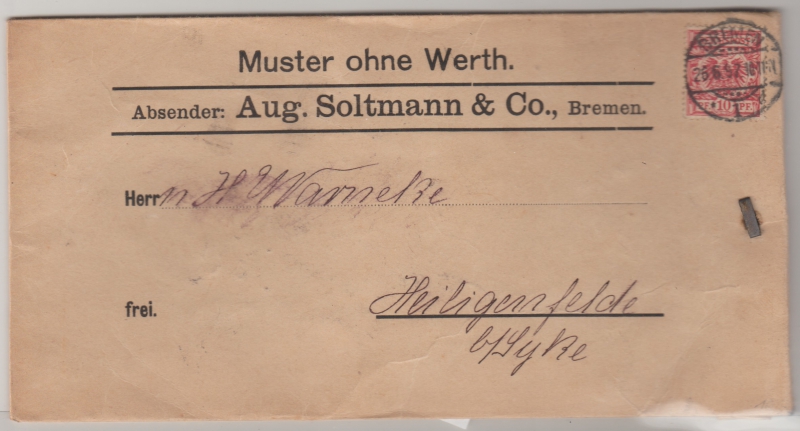 Muster ohne Werth.
Absender: Aug. Soltmann & Co., Bremen.
Herrn H Warneke
frei.
Heiligenfelde
b/Syke
BREMEN
10 PF